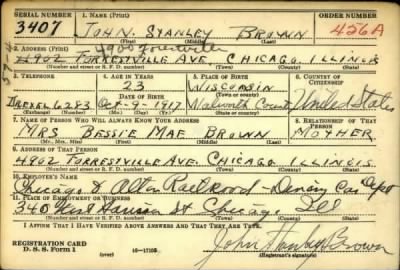 SERIAL NUMBER 1. NAME (Print) ORDER NUMBER
3407 JOHN STANLEY BROWN 456A
(First) (Middle) (Last)
2. ADDRESS (Print)
4900 Forestville
4902 FORRESTVILLE AVE. CHICAGO ILLINOIS
(Number and street or R. F. D. number) (Town) (County) (State)
3. TELEPHONE 4. AGE IN YEARS 5. PLACE OF BIRTH 6. COUNTRY OF CITIZENSHIP
23 WISCONSIN
DATE OF BIRTH (Town or county)
DREXEL 6283 Oct-9-1917 Walworth County United States
(Exchange) (Number) (Mo.) (Day) (Yr.) (State or country)
7. NAME OF PERSON WHO WILL ALWAYS KNOW YOUR ADDRESS 8. RELATIONSHIP OF THAT PERSON
MRS BESSIE MAE BROWN MOTHER
(Mr., Mrs., Miss) (First) (Middle) (Last)
9. ADDRESS OF THAT PERSON
4902 FORRESTVILLE AVE. CHICAGO ILLINOIS.
(Number and street or R. F. D. number) (Town) (County) (State)
10. EMPLOYER'S NAME
Chicago & Alton Railroad - Dining Car Dept
11. PLACE OF EMPLOYMENT OR BUSINESS
340 West Harrison St Chicago Ill
(Number and street or R. F. D. number) (Town) (County) (State)
I AFFIRM THAT I HAVE VERIFIED ABOVE ANSWERS AND THAT THEY ARE TRUE.
John Stanley Brown
REGISTRATION CARD
D. S. S. Form 1 (over) 16-17105 (Registrant's signature)